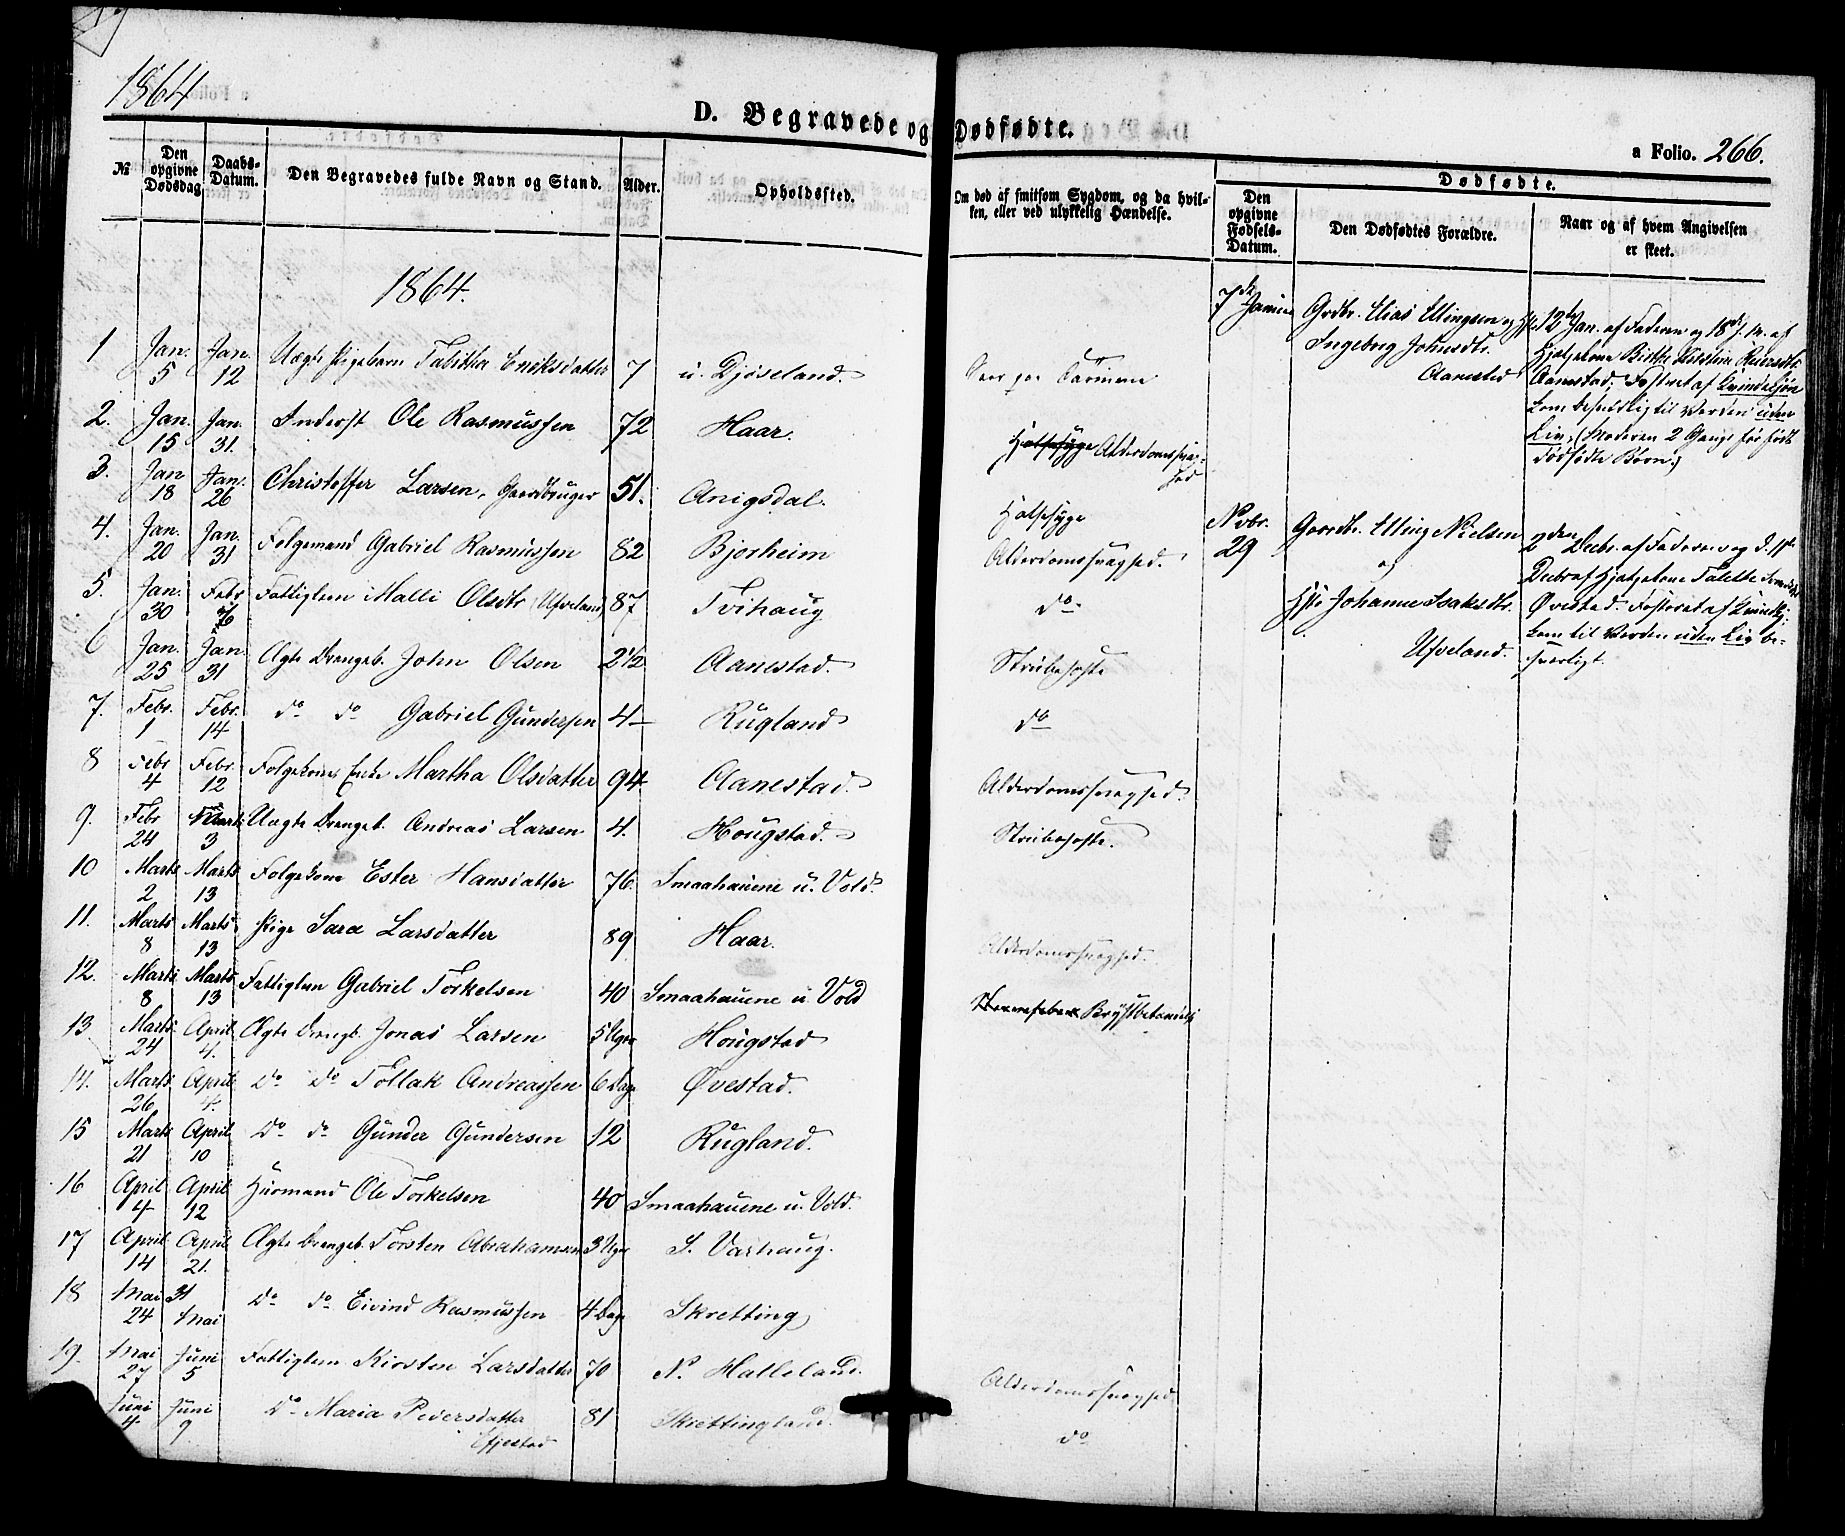 1864
D. Begravede og Dødfødte.
a Folio. 266.
№
Den opgivne Dødsdag
Daabs-Datum.
Den Begravedes fulde Navn og Stand.
Alder.
Opholdssted.
Om død af smitsom Sygdom, og da hvil-
ken, eller ved ulykkelig Hændelse.
Dødfødte.
Den opgivne Fødsels-Datum.
Den Dødfødtes Forældre.
Naar og af hvem Angivelsen
er skeet.
1864.
1 Jan. 5 Jan. 12 Uægte Pigebarn Tabitha Eriksdatter 7 u. Djøseland.
2. Jan. 15 Jan. 31. Inderst Ole Rasmussen 72 Haar. Halsesyge Alderdomssvag-
hed
3. Jan 18 Jan. 26 Christoffer Larsen, Gaardbruger 51. Anigsdal. Halsesyge
4. Jan. 20 Jan. 31 Folgemand Gabriel Rasmussen 82 Bjorheim Alderdomssvaghed.
5. Jan. 30 Febr 7 Fattiglem Malli Olsdtr (Ufveland) 87 Tvihaug do
6 Jan. 25 Jan. 31 Ægte Drengeb. John Olsen 2 1/2 Aanestad. Strubehoste
7. Febr. 1 Febr. 14 do do Gabriel Gundersen 4 Rugland do
8 Febr 4 Febr. 12 Folgekone Enke Martha Olsdatter 94 Aanestad. Alderdomssvaghed.
9. Febr 24 Marts 3 Uægte Drengeb. Andreas Larsen 4. Hougstad. Strubehoste.
10 Marts 2 Marts 13 Folgekone Ester Hansdatter 76 Smaahauene u. Vold.
11. Marts 8 Marts 13 Pige Sara Larsdatter 89 Haar. Alderdomssvaghed.
12. Marts 8 Marts 13 Fattiglem Gabriel Torkelsen 40 Smaahauene u. Vold
13 Marts 24 April 4. Ægte Drengb. Jonas Larsen 5 Uger Hougstad
14. Marts 26 April 4. Do Do Tollak Andreassen 6 Dage Øvestad.
15 Marts 21 April 10 Do do Gunder Gundersen 12 Rugland.
16 April 4 April 12 Huusmand Ole Torkelsen 40 Smaahauene u. Vold.
17 April 14 April 21. Ægte Drengeb. Torsten Abrahamsen 3 Uger S. Varhaug.
18 Mai 24 31 Mai Do do Eivind Rasmussen 4 Dage Skretting
19. Mai 27 Juni 5 Fattiglem Kirsten Larsdatter 70 N. Halleland. Alderdomssvaghed
Juni 4 Juni 9 Do Maria Pedersdatter 81 Skrettingland. do
7de Januar Grdbr. Elias Ellingsen og Hst.
Ingeborg Johnsdtr.
Aanestad
12te Jan. af Faderen og 18de f. M. af
Hjælpekone Birthe
Aanestad; Fostret af Kvindekjøn
kom besværlig til Verden uden
Liv, (Moderen 2 Gange før født
dødfødte Børn.)
Novbr. 29 Gaardbr. Elling Nielsen
og
Hst. Johanne Isaksdtr.
Ufveland.
2den Decbr. af Faderen og d. 11te
Decbr af Hjælpekone Tolette
Øvestad. Fosteret af Kvindkj.
kom til Verden uden Liv be-
sværligt.